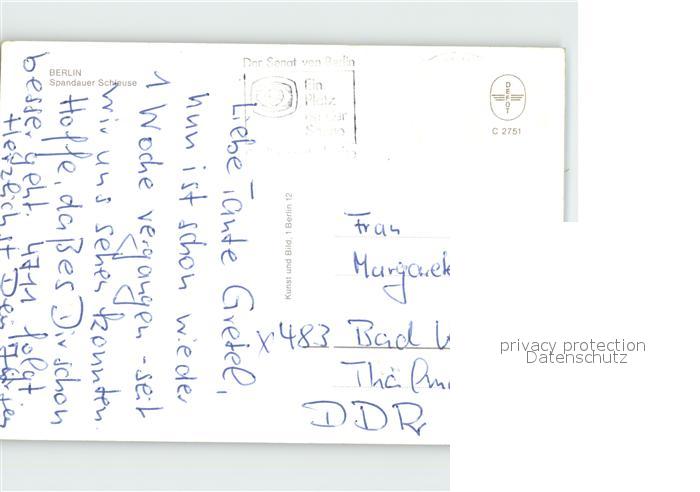 BERLIN
Spandauer Schleuse
Der Senat von Berlin
Ein
Platz
an der
Sonne
DEFOT
C 2751
Kunst und Bild, 1 Berlin 12
Liebe Tante Gretel,
nun ist schon wieder
1 Woche vergangen - seit
wir uns sehen konnten.
Hoffe, daß es Dir schon
besser geht. 4711 folgt
Herzlichst Dein
Frau
Margarete
x483 Bad
DDR
privacy protection
Datenschutz